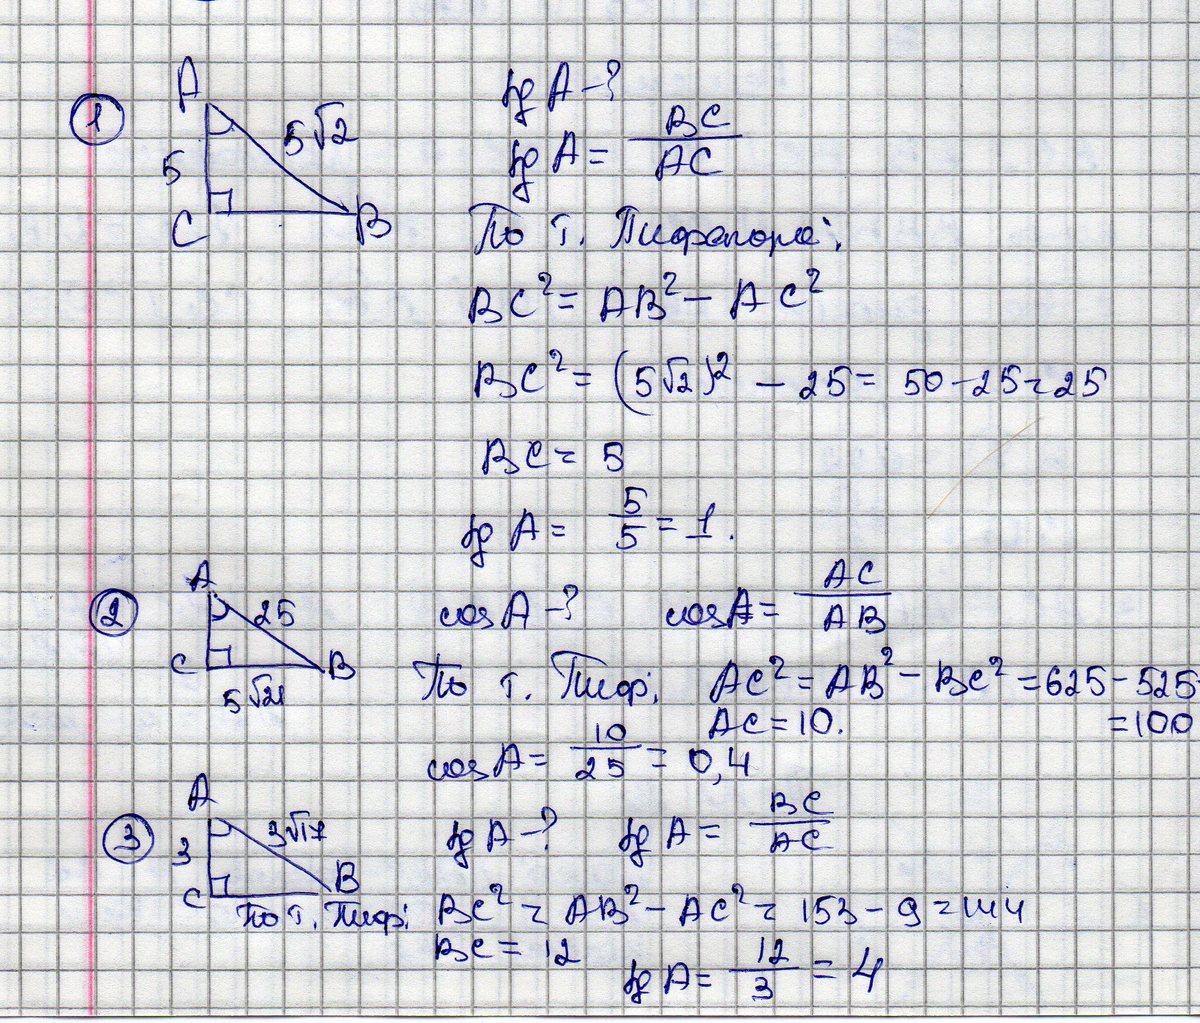 1
A
5√2
5
C
B
tg A - ?
tg A = BC/AC
По т. Пифагора:
BC² = AB² - AC²
BC² = (5√2)² - 25 = 50 - 25 = 25
BC = 5
tg A = 5/5 = 1.
2
A
25
C
B
5√21
cos A - ?
cos A = AC/AB
По т. Пиф: AC² = AB² - BC² = 625 - 525
= 100
AC = 10.
cos A = 10/25 = 0,4
3
A
3√17
3
C
B
tg A - ?
tg A = BC/AC
По т. Пиф: BC² = AB² - AC² = 153 - 9 = 144
BC = 12
tg A = 12/3 = 4